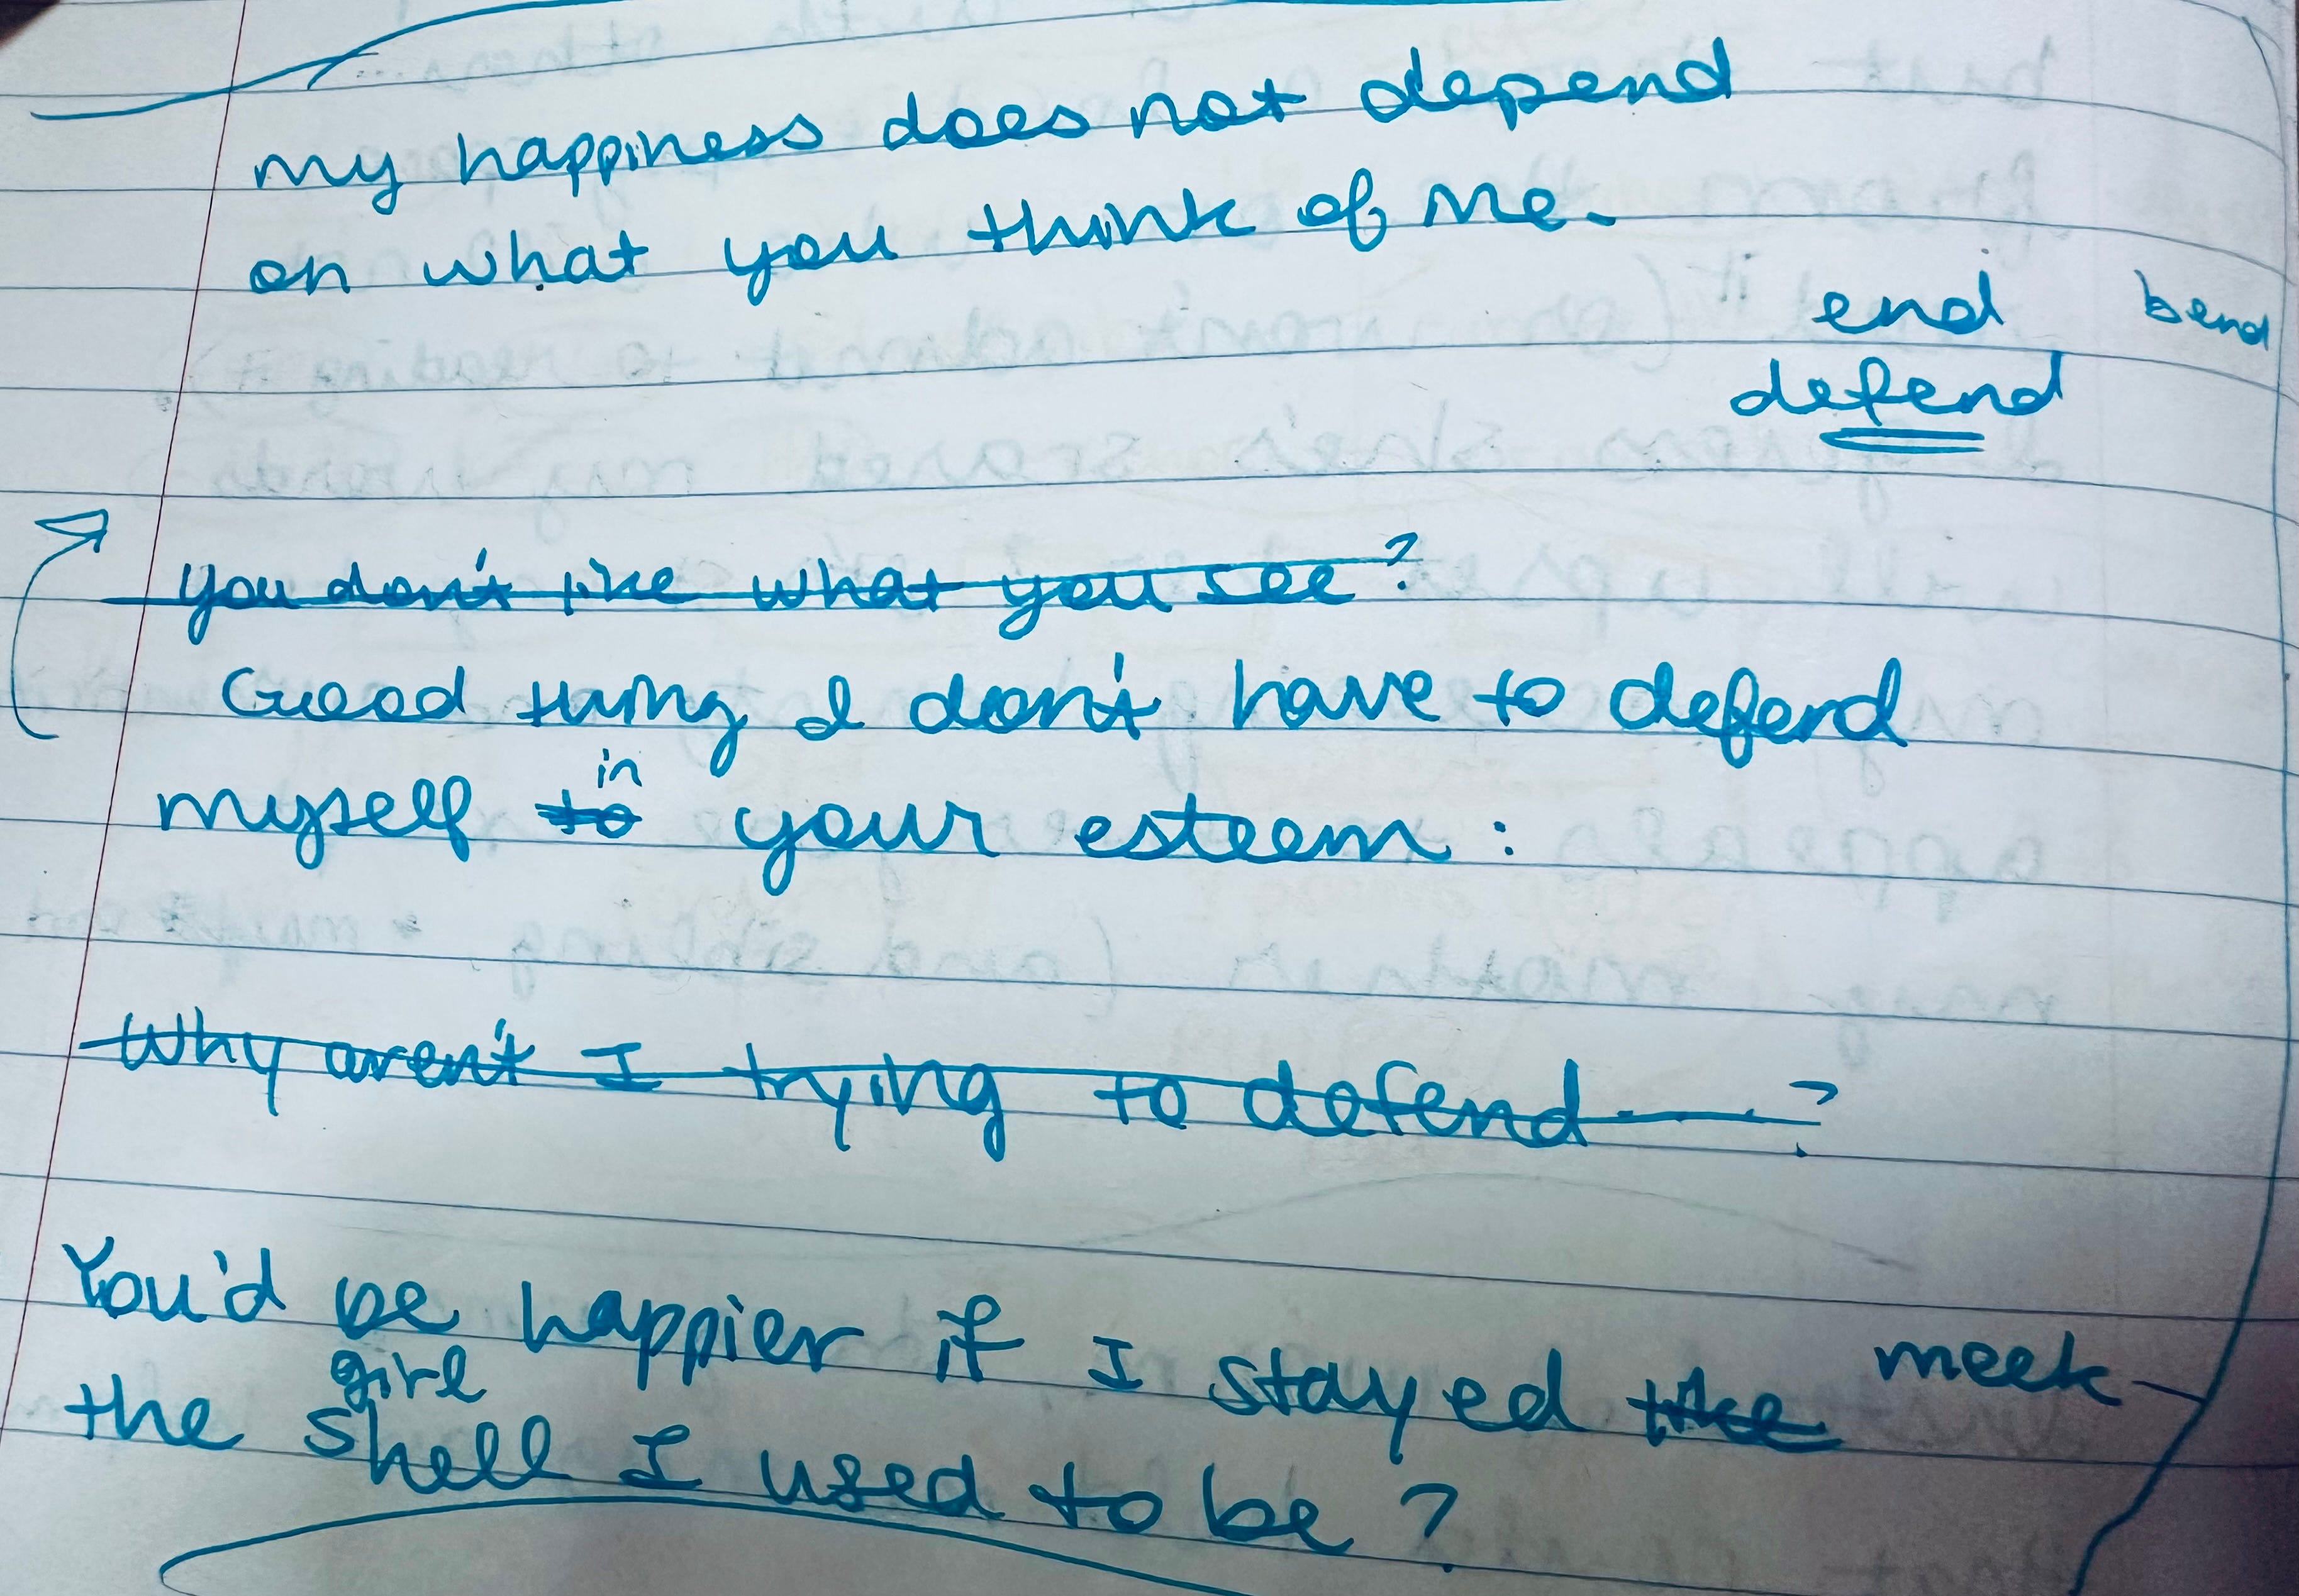 my happiness does not depend
on what you think of me.
end bend
defend
you don't like what you see?
Good thing I don't have to defend
in
myself to your esteem :
Why aren't I trying to defend ?
You'd be happier if I stayed the meek
girl
the shell I used to be?